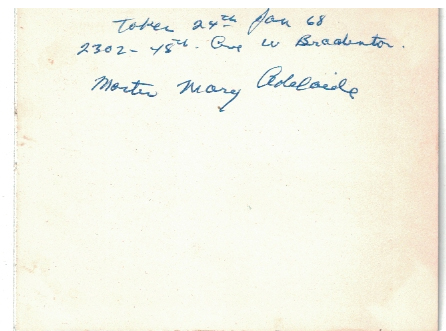 Taken 24th Jan 68
2302-45th. Ave W Bradenton.
Morten Mary Adelaide